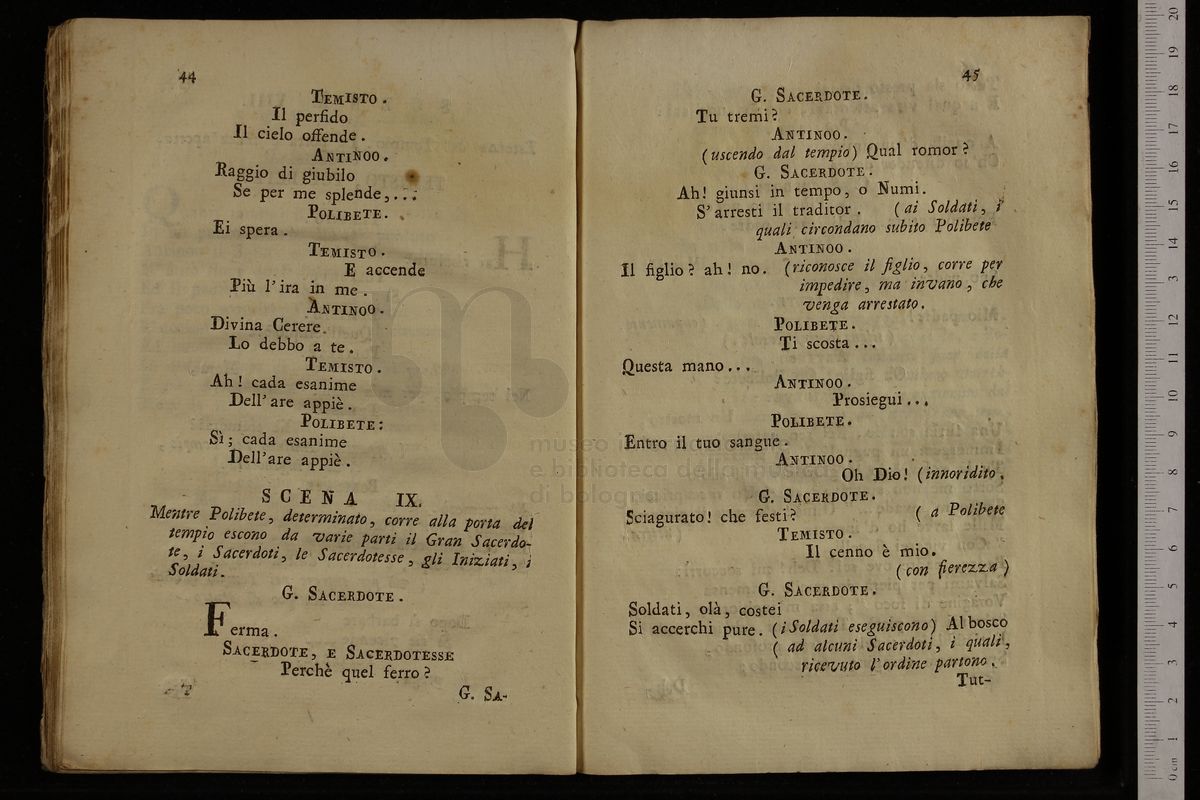 44
TEMISTO.
Il perfido
Il cielo offende.
ANTINOO.
Raggio di giubilo
Se per me splende,...
POLIBETE.
Ei spera.
TEMISTO.
E accende
Più l'ira in me.
ANTINOO.
Divina Cerere
Lo debbo a te.
TEMISTO.
Ah! cada esanime
Dell'are appiè.
POLIBETE:
Sì; cada esanime
Dell'are appiè.
SCENA IX.
Mentre Polibete, determinato, corre alla porta del
tempio escono da varie parti il Gran Sacerdo-
te, i Sacerdoti, le Sacerdotesse, gli Iniziati, i
Soldati.
G. SACERDOTE.
Ferma.
SACERDOTE, E SACERDOTESSE
Perchè quel ferro?
G. SA-
45
G. SACERDOTE.
Tu tremi?
ANTINOO.
(uscendo dal tempio) Qual romor?
G. SACERDOTE.
Ah! giunsi in tempo, o Numi.
S'arresti il traditor. (ai Soldati, i
quali circondano subito Polibete
ANTINOO.
Il figlio? ah! no. (riconosce il figlio, corre per
impedire, ma invano, che
venga arrestato.
POLIBETE.
Ti scosta...
Questa mano...
ANTINOO.
Prosiegui...
POLIBETE.
Entro il tuo sangue.
ANTINOO.
Oh Dio! (innoridito.
G. SACERDOTE.
Sciagurato! che festi? (a Polibete
TEMISTO.
Il cenno è mio.
(con fierezza)
G. SACERDOTE.
Soldati, olà, costei
Si accerchi pure. (i Soldati eseguiscono) Al bosco
(ad alcuni Sacerdoti, i quali,
ricevuto l'ordine partono.
Tut-
museo
e biblioteca della musica
di bologna
0 cm 1 2 3 4 5 6 7 8 9 10 11 12 13 14 15 16 17 18 19 20